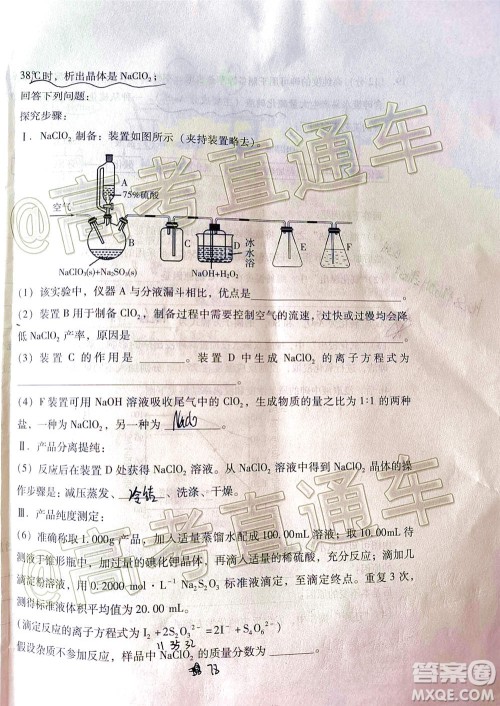 38℃时，析出晶体是 NaClO₂；
回答下列问题：
探究步骤：
Ⅰ．NaClO₂ 制备：装置如图所示（夹持装置略去）。
A
75%硫酸
空气
B
C
D
冰水浴
E
F
NaClO₃(s)+Na₂SO₃(s)
NaOH+H₂O₂
（1）该实验中，仪器 A 与分液漏斗相比，优点是________。
（2）装置 B 用于制备 ClO₂，制备过程中需要控制空气的流速，过快或过慢均会降
低 NaClO₂ 产率，原因是________。
（3）装置 C 的作用是________。装置 D 中生成 NaClO₂ 的离子方程式为
________。
（4）F 装置可用 NaOH 溶液吸收尾气中的 ClO₂，生成物质的量之比为 1:1 的两种
盐，一种为 NaClO₂，另一种为________。
Ⅱ．产品分离提纯：
（5）反应后在装置 D 处获得 NaClO₂ 溶液。从 NaClO₂ 溶液中得到 NaClO₂ 晶体的操
作步骤是：减压蒸发、冷结、洗涤、干燥。
Ⅲ．产品纯度测定：
（6）准确称取 1.000g 产品，加入适量蒸馏水配成 100.00mL 溶液，取 10.00mL
待测液于锥形瓶中，加入适量的碘化钾晶体，再滴入适量的稀硫酸，充分反应；滴加几
滴淀粉溶液，用 0.2000 mol·L⁻¹ Na₂S₂O₃ 标准液滴定，至滴定终点。重复 2 次，
测得标准液体积平均值为 20.00 mL。
（滴定反应的离子方程式为 I₂+2S₂O₃²⁻=2I⁻+S₄O₆²⁻）
假设杂质不参加反应，样品中 NaClO₂ 的质量分数为________。
@高考直通车
@高考直通车
答案圈
MXQE.COM